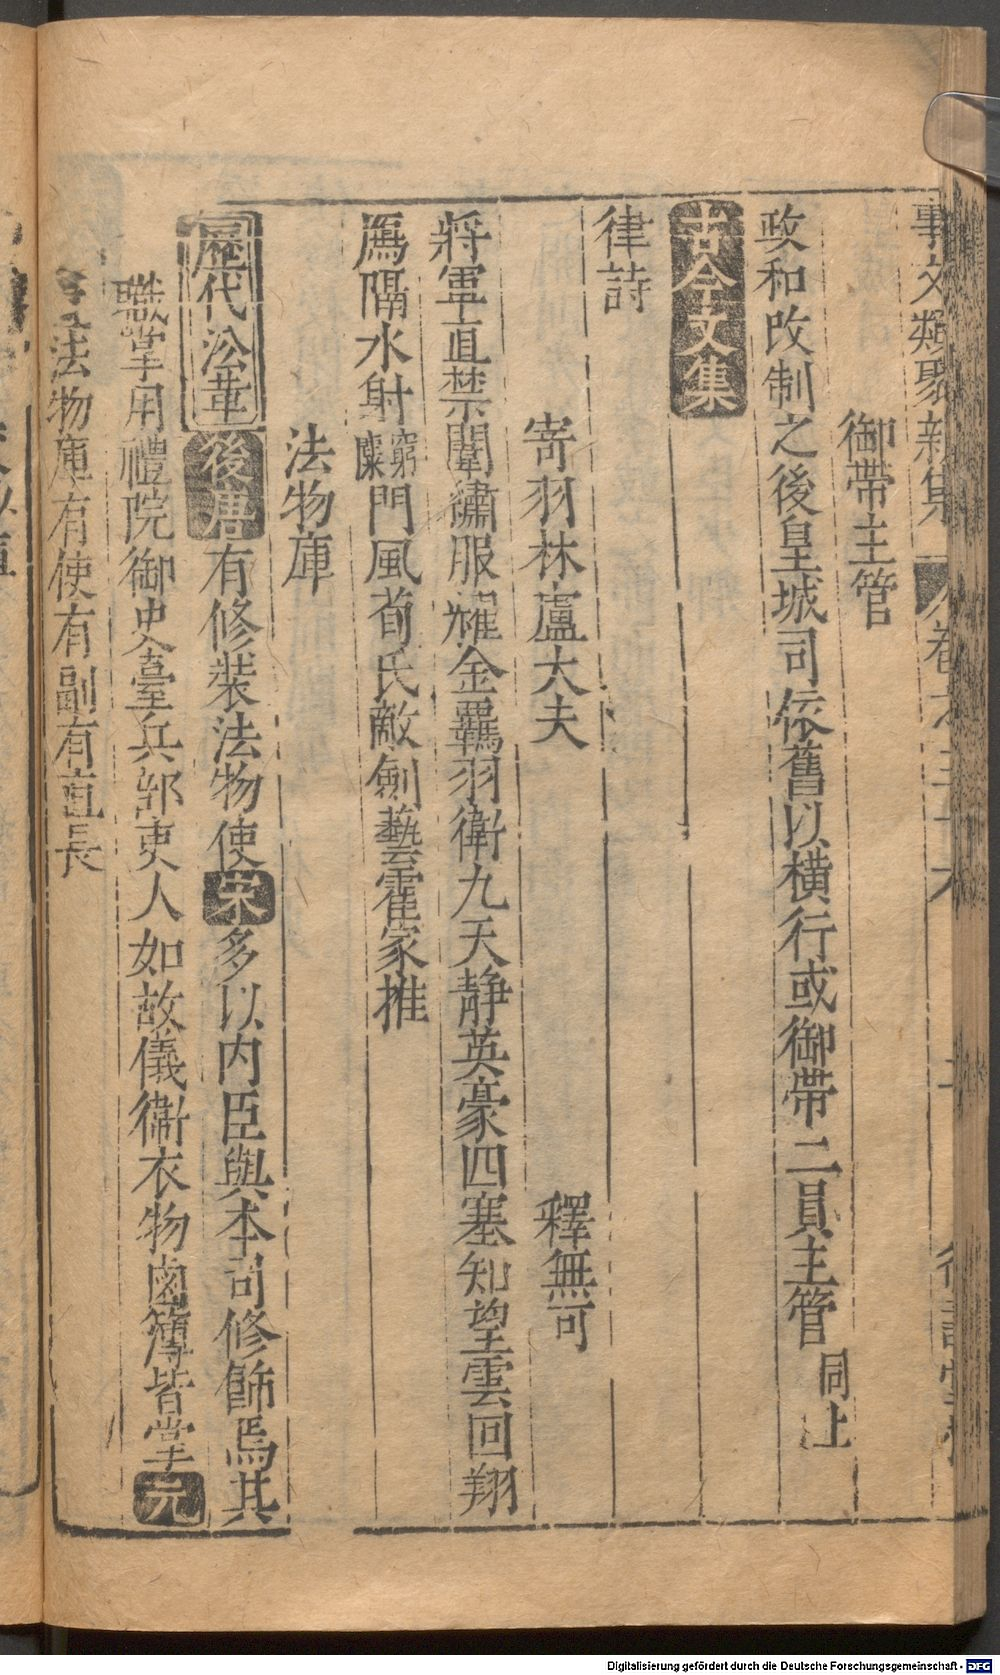 事文類聚新集 卷之三十六
御帶主管
政和改制之後皇城司依舊以橫行或御帶二員主管同上
古今文集
律詩
寄羽林盧大夫 釋無可
將軍直禁闈繡服耀金羈羽衛九天靜英豪四塞知望雲回翔
鴈隔水射窮麋門風荀氏敵劍藝霍家推
法物庫
歷代沿革 後唐有修裝法物使宋多以內臣與本司修飾焉其
職掌用禮院御史臺兵部吏人如故儀衛衣物鹵簿皆掌元
法物庫有使有副有直長
Digitalisierung gefördert durch die Deutsche Forschungsgemeinschaft - DFG